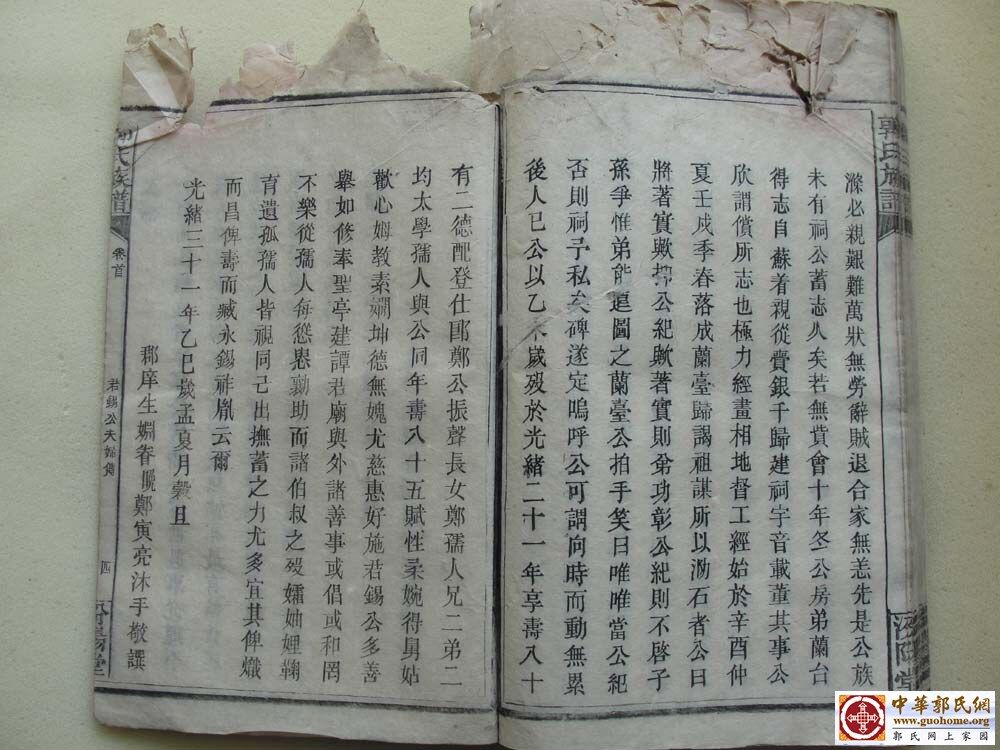 郭氏族譜
滌必親艱難萬狀無勞辭賊退合家無恙先是公族
未有祠公蓄志久矣若無貲會十年冬公房弟蘭台
得志自蘇着親從費銀千歸建祠字音載董其事公
欣謂償所志也極力經畫相地督工經始於辛酉仲
夏壬戍季春落成蘭臺歸謁祖謀所以泐石者公曰
將著實歟抑公紀歟著實則弟功彰公紀則不啓子
孫爭惟弟能進圖之蘭臺公拍手笑曰唯唯當公紀
否則祠予私矣碑遂定嗚呼公可謂向時而動無累
後人巳公以乙未歲歿於光緒二十一年享壽八十
有二德配登仕郎鄭公振聲長女鄭孺人兄二弟二
均太學孺人與公同年壽八十五賦性柔婉得舅姑
歡心姆教素嫻坤德無媿尤慈惠好施君錫公多善
舉如修奉聖亭建譚君廟與外諸善事或倡或和罔
不樂從孺人每慫恿勷助而諸伯叔之歿孀妯娌鞠
育遺孤孺人皆視同己出撫蓄之力尤多宜其俾熾
而昌俾壽而臧永錫祚胤云爾
光緒三十一年乙巳歲孟夏月穀旦
郡庠生姻眷晚鄭寅亮沐手敬譔
氏族譜
卷首
君錫公夫婦傳
四
汾陽堂
中華郭氏網
www.guohome.org
郭氏網上家園